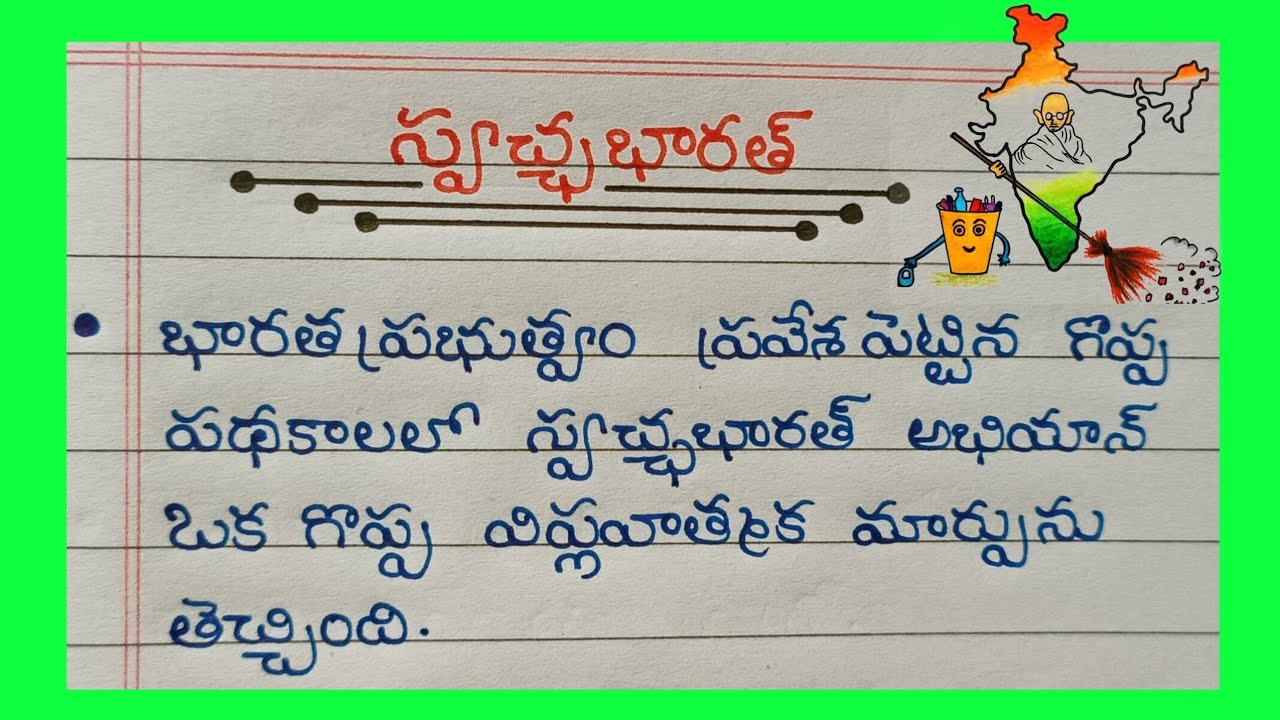 స్వచ్ఛభారత్
భారత ప్రభుత్వం ప్రవేశ పెట్టిన గొప్ప
పథకాలలో స్వచ్ఛభారత్ అభియాన్
ఒక గొప్ప విప్లవాత్మక మార్పును
తెచ్చింది.